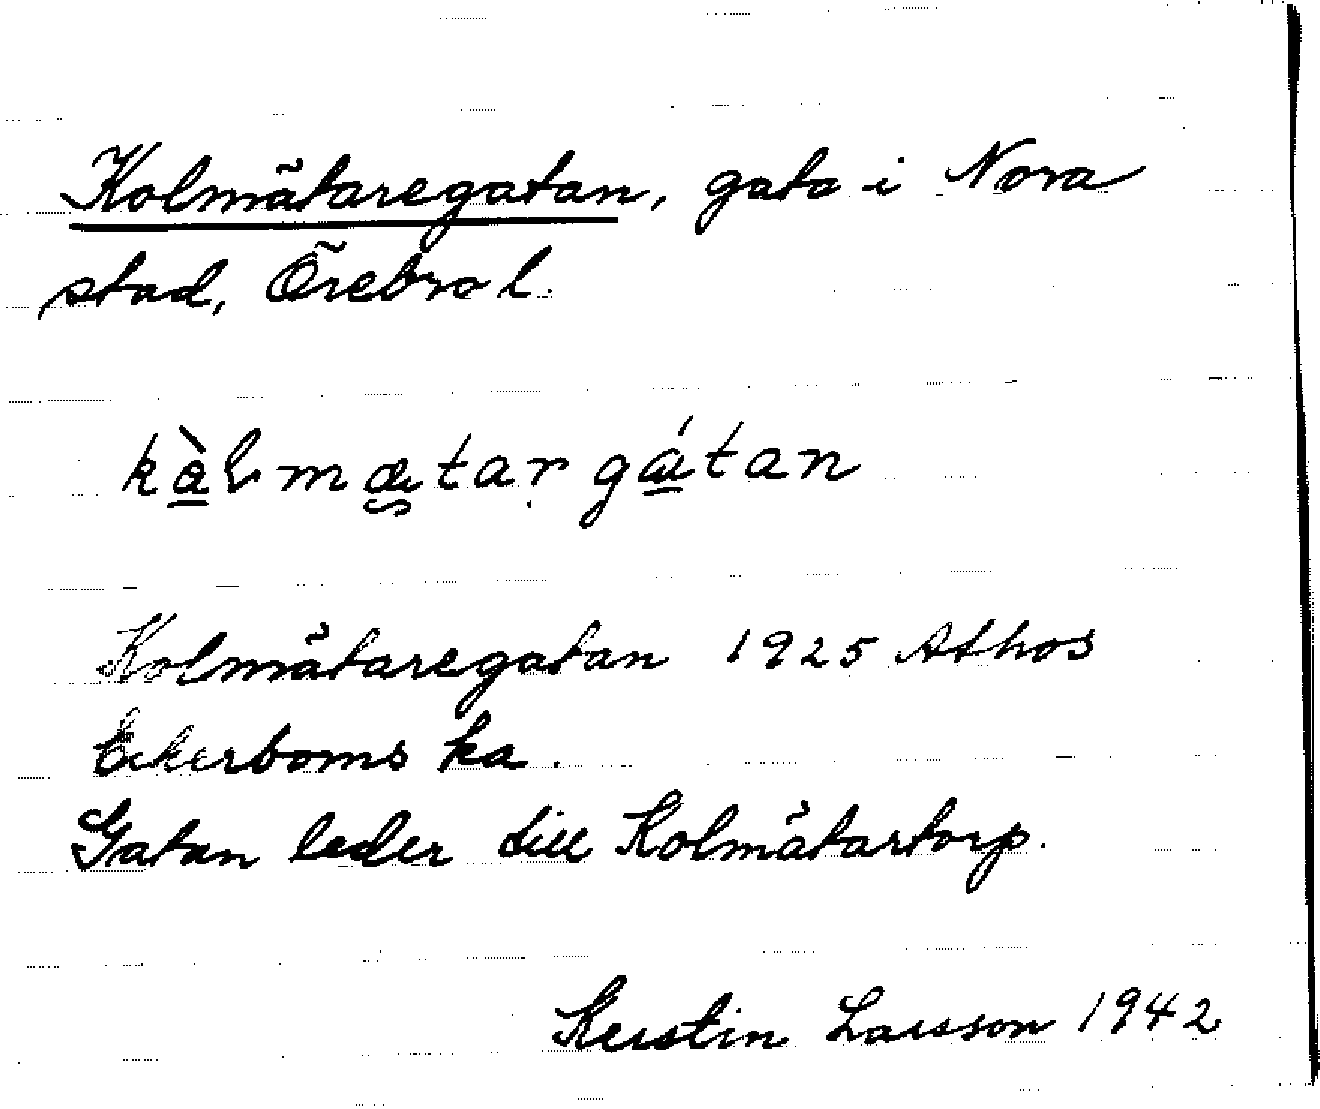 Kolmätaregatan, gata i Nora
stad, Örebro l.
kå̀lmætargátan
Kolmätaregatan 1925 Athos
Ekerboms ka.
Gatan leder till Kolmätartorp.
Kerstin Larsson 1942